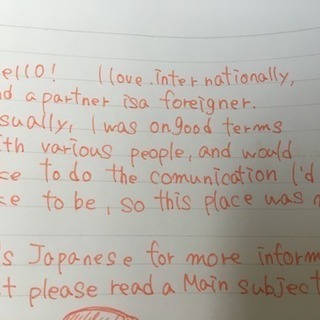 ello! I love.internationally,
nd a partner isa foreigner.
sually, I was ongood terms
ith various people, and would
ke to do the comunication I'd
ke to be, so this place was
's Japanese for more inform
t please read a Main subject